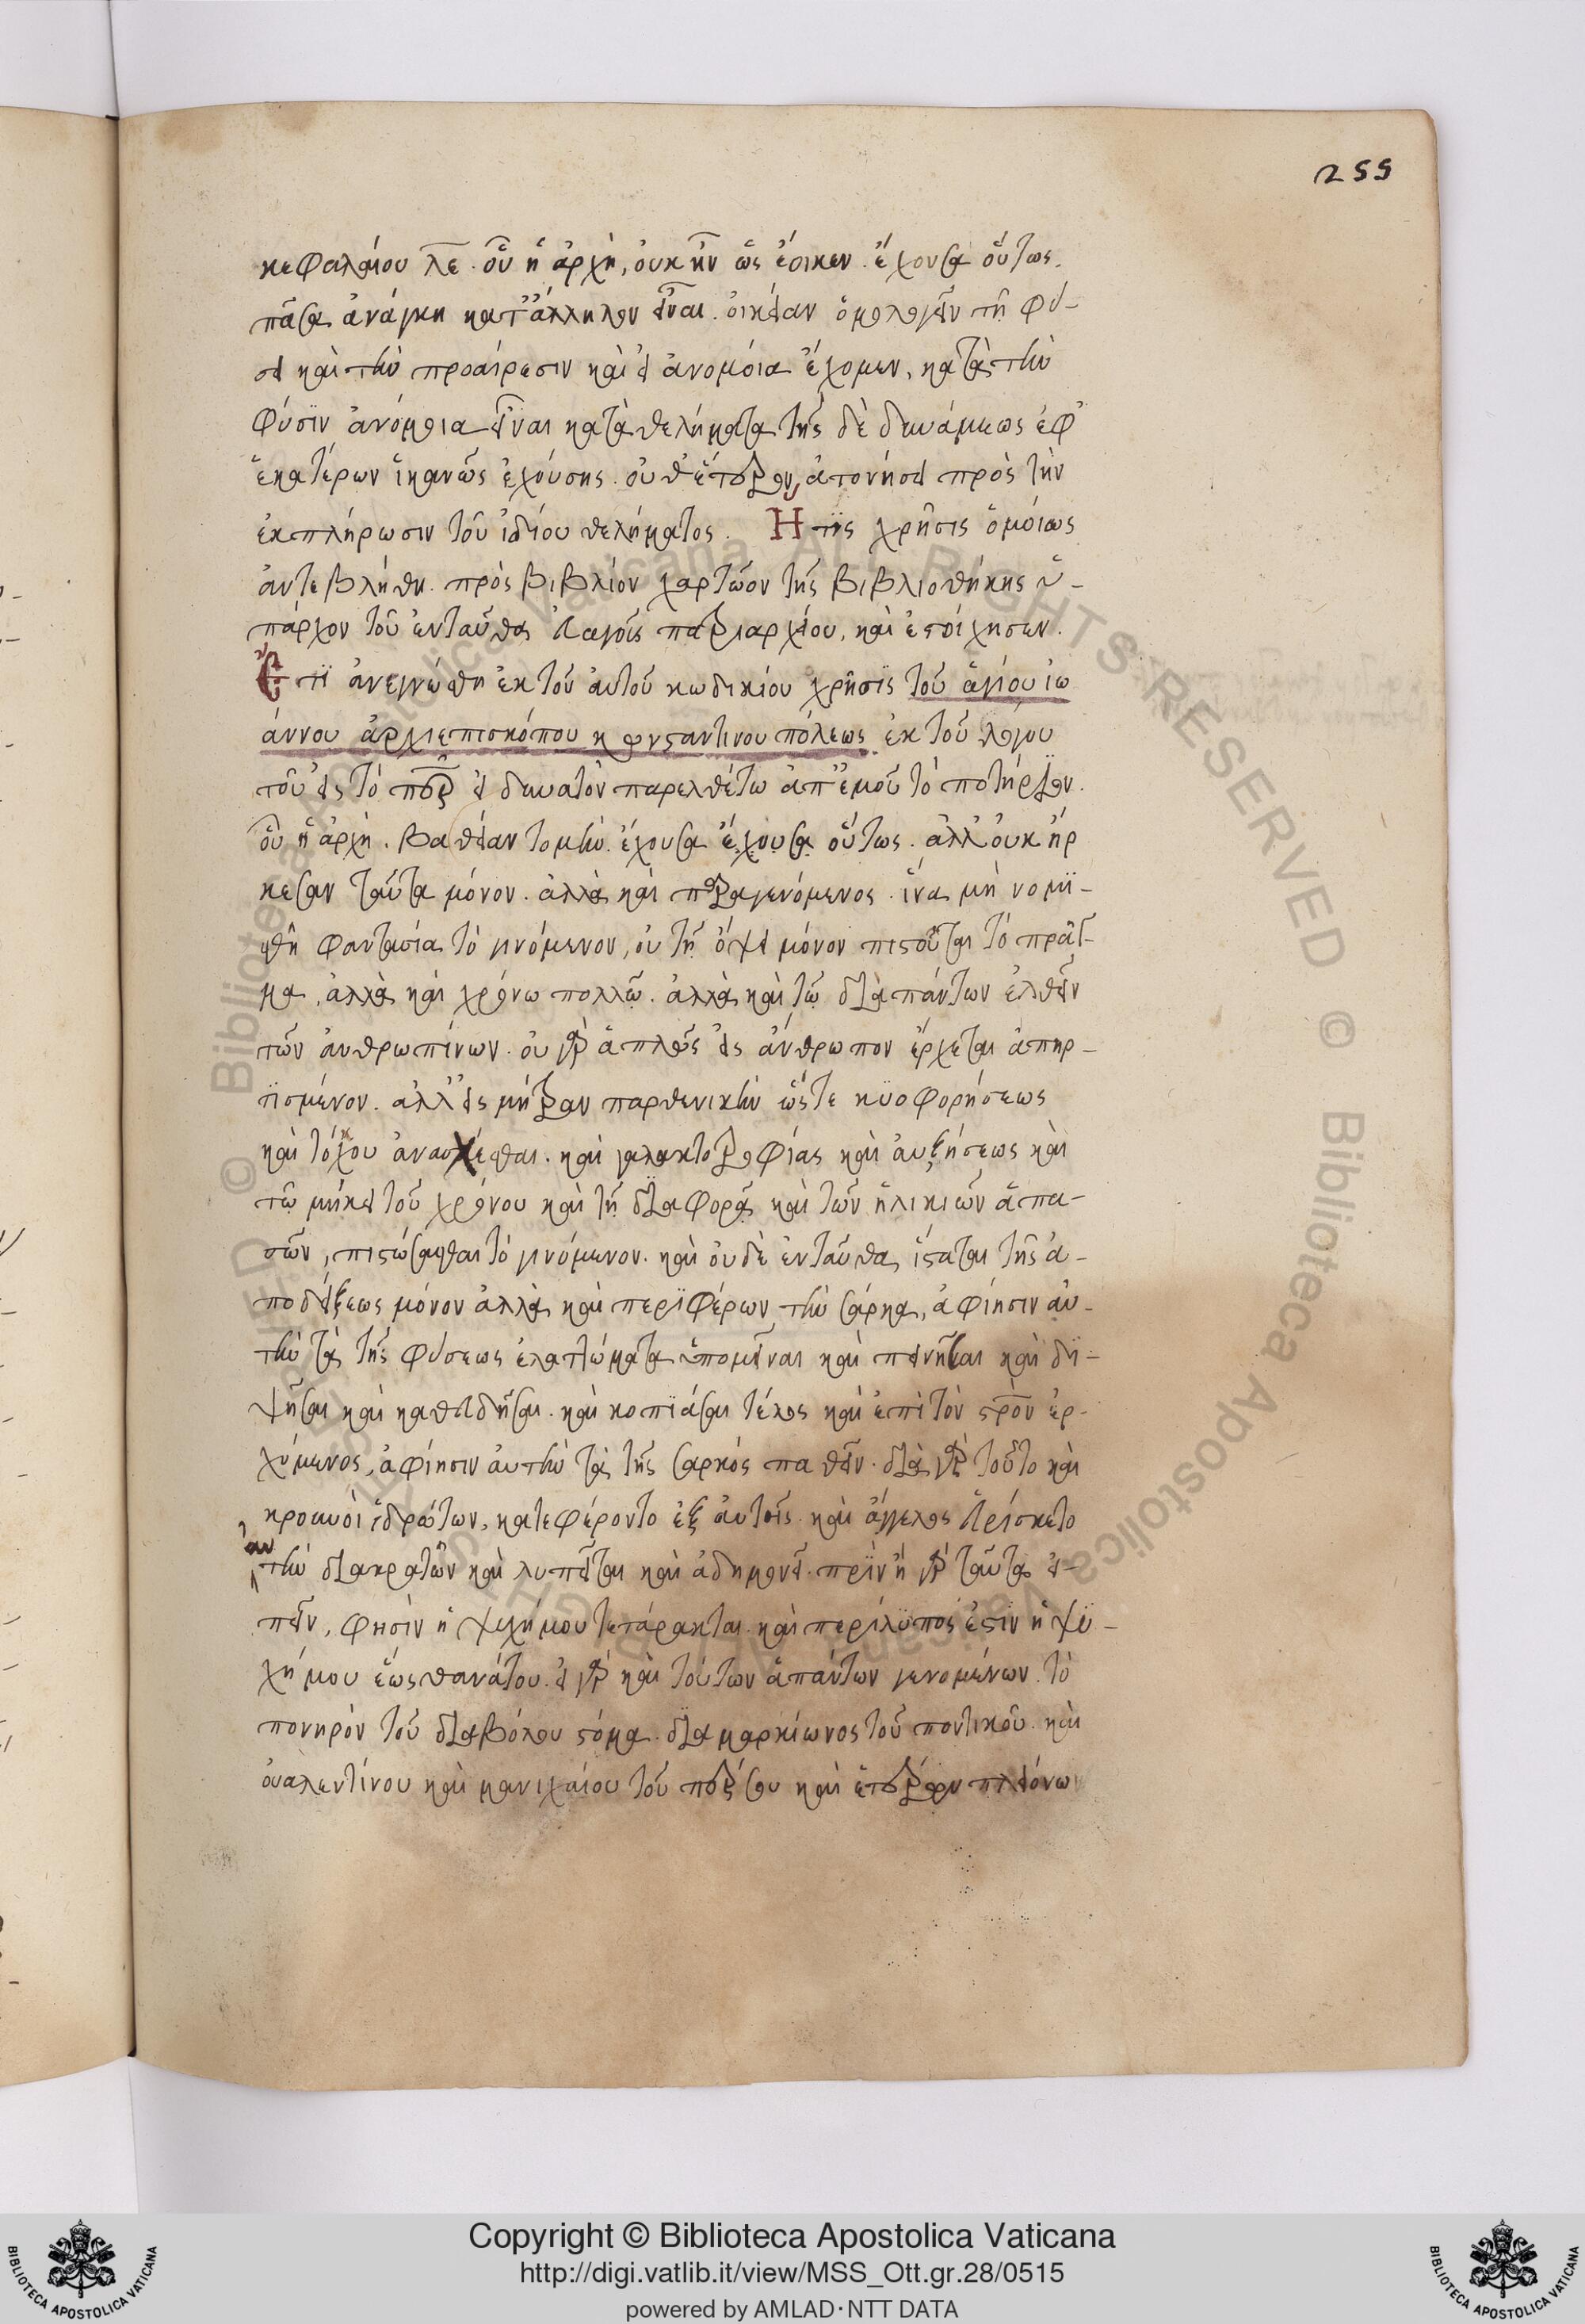 255
κεφαλαίου λε. οὗ ἡ ἀρχὴ, οὐκ ἦν ὡς ἔοικεν. ἔχουσα οὕτως.
πᾶσα ἀνάγκη κατ' ἄλληλον εἶναι. οἰκείαν ὁμολογεῖν τῇ φύ-
σει καὶ τὴν προαίρεσιν καὶ εἰ ἀνομόια ἔχομεν, κατὰ τὴν
φύσϊν ἀνόμοια εἶναι κατὰ θελήματα τῆς δὲ δυνάμεως ἐφ'
ἑκατέρων ἱκανῶς ἐχούσης. οὐθ' ἕτερον, ἀτονήσει πρὸς τὴν
ἐκπλήρωσιν τοῦ ἰδίου θελήματος. Ητϊς χρῆσις ὁμοίως
ἀντεβλήθη. πρὸς βιβλίον χαρτῶον τῆς βιβλιοθήκης ὑ-
πάρχον τοῦ ἐνταῦθα εὐαγοῦς πατριαρχείου, καὶ ἐστοίχησεν.
Ετϊ ἀνεγνώσθη ἐκ τοῦ αὐτοῦ κωδικίου χρῆσϊς τοῦ ἁγίου ἰω
άννου ἀρχιεπισκόπου κωνσταντινουπόλεως ἐκ τοῦ λόγου
τοῦ εἰς τὸ περ εἰ δυνατὸν παρελθέτω ἀπ' ἐμοῦ τὸ ποτήριον.
οὗ ἡ ἀρχὴ. βαθεῖαν τομὴν. ἔχουσα ἔχουσα οὕτως. ἀλλ' οὐκ ἤρ
κεσαν ταῦτα μόνον. ἀλλὰ καὶ παραγενόμενος. ἵνα μὴ νομϊ-
σθῆ φαντασία τὸ γινόμενον, οὐ τῇ ὄψει μόνον πιστοῦται τὸ πρᾶγ-
μα, ἀλλὰ καὶ χρόνω πολλῶ. ἀλλὰ καὶ τῷ διὰ πάντων ἐλθεῖν
τῶν ἀνθρωπίνων. οὐ γὰρ ἁπλῶς εἰς ἄνθρωπον ἔρχεται ἀπηρ-
τϊσμένον. ἀλλ' εἰς μήτραν παρθενικὴν ὥστε κϋοφορήσεως
καὶ τόκου ἀνασχέσθαι. καὶ γαλακτοτροφίας καὶ αὐξήσεως καὶ
τῷ μήκει τοῦ χρόνου καὶ τῇ διαφορᾷ καὶ τῶν ἡλικιῶν ἁπα-
σῶν, πιστώσασθαι τὸ γινόμενον. καὶ οὐδὲ ἐνταῦθα, ἵσταται τῆς ἀ-
ποδείξεως μόνον ἀλλὰ καὶ περϊφέρων τὴν σάρκα, ἀφίησιν αὐ-
τὴν τὰ τῆς φύσεως ἐλαττώματα ὑπομεῖναι καὶ πεινῆσαι καὶ δϊ-
ψῆσαι καὶ καθευδῆσαι. καὶ κοπϊάσαι τέλος καὶ ἐπὶ τὸν στρὸν ἐρ-
χόμενος, ἀφίησιν αὐτὴν τὰ τῆς σαρκὸς παθεῖν. διὰ γὰρ τοῦτο καὶ
κρουνοὶ ἱδρώτων, κατεφέροντο ἐξ αὐτοῖς. καὶ ἄγγελος εὑρίσκετο
αὐτὴν διακρατῶν καὶ λυπεῖται καὶ ἀδημονεῖ. πρϊν ἢ γὰρ ταῦτα εἰ-
πεῖν, φησὶν ἡ ψυχή μου τετάρακται. καὶ περίλϋπός ἐστϊν ἡ ψϋ-
χή μου ἕως θανάτου. εἰ γὰρ καὶ τούτων ἁπάντων γενομένων. τὸ
πονηρὸν τοῦ διαβόλου στόμα. διὰ μαρκίωνος τοῦ ποντικοῦ. καὶ
οὐαλεντίνου καὶ μανιχαίου τοῦ πέρσου καὶ ἑτέρων πλειόνων